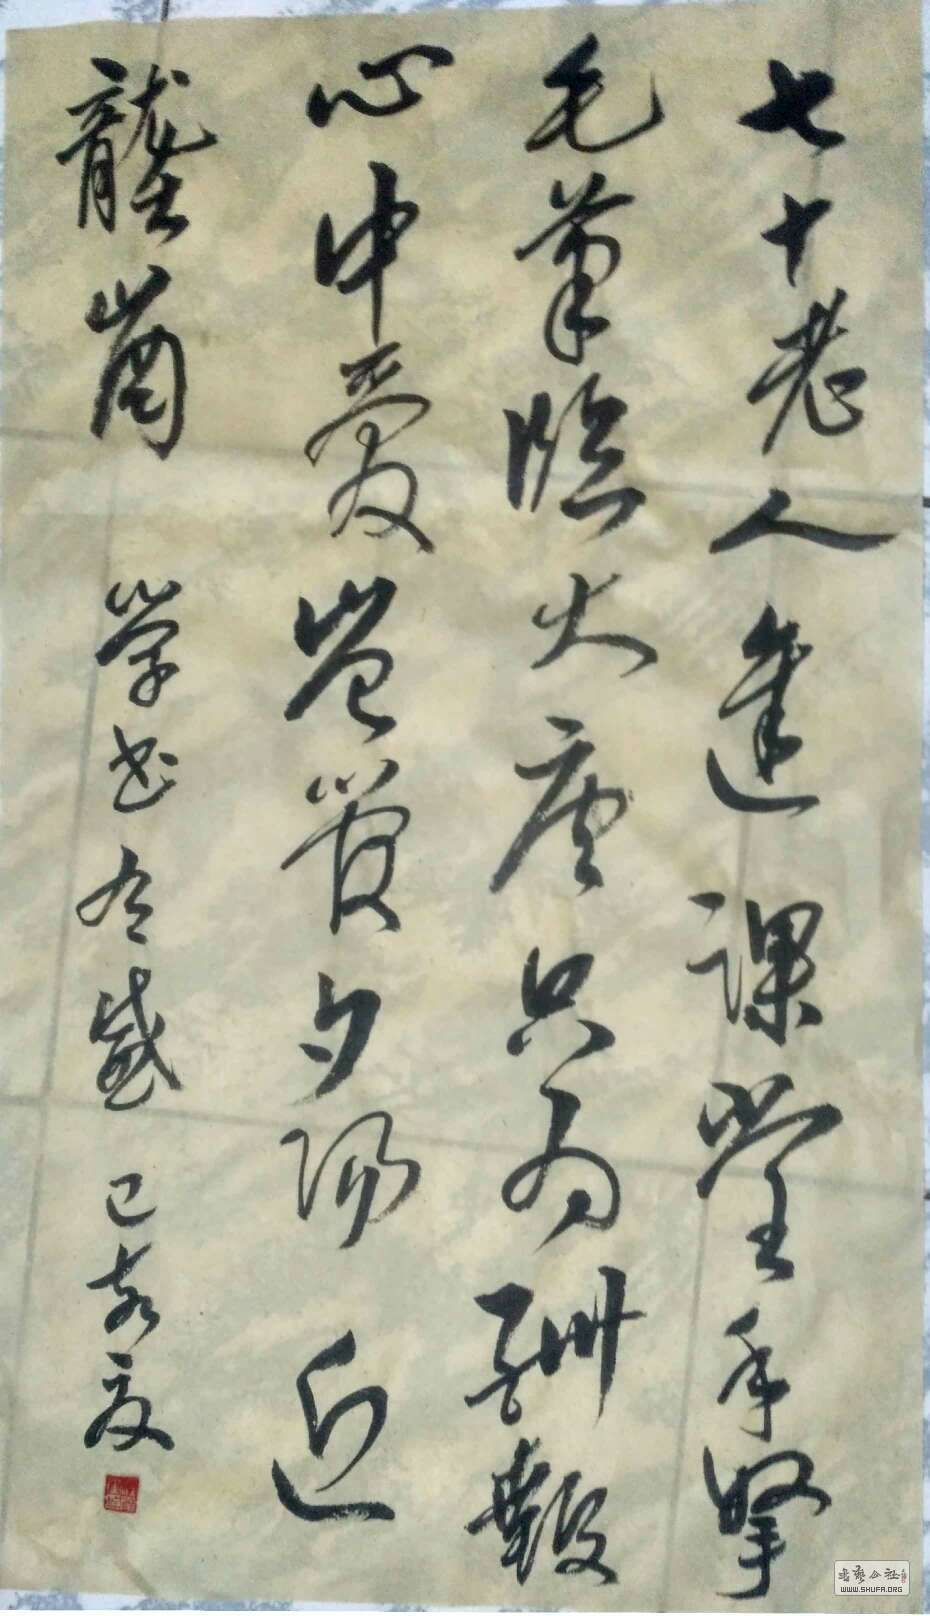 七十老人進課堂手擎
毛筆臨大唐只為酬報
心中愛豈管夕陽近
山岗 學書有感 己亥夏
書藝公社
WWW.SHUFA.ORG